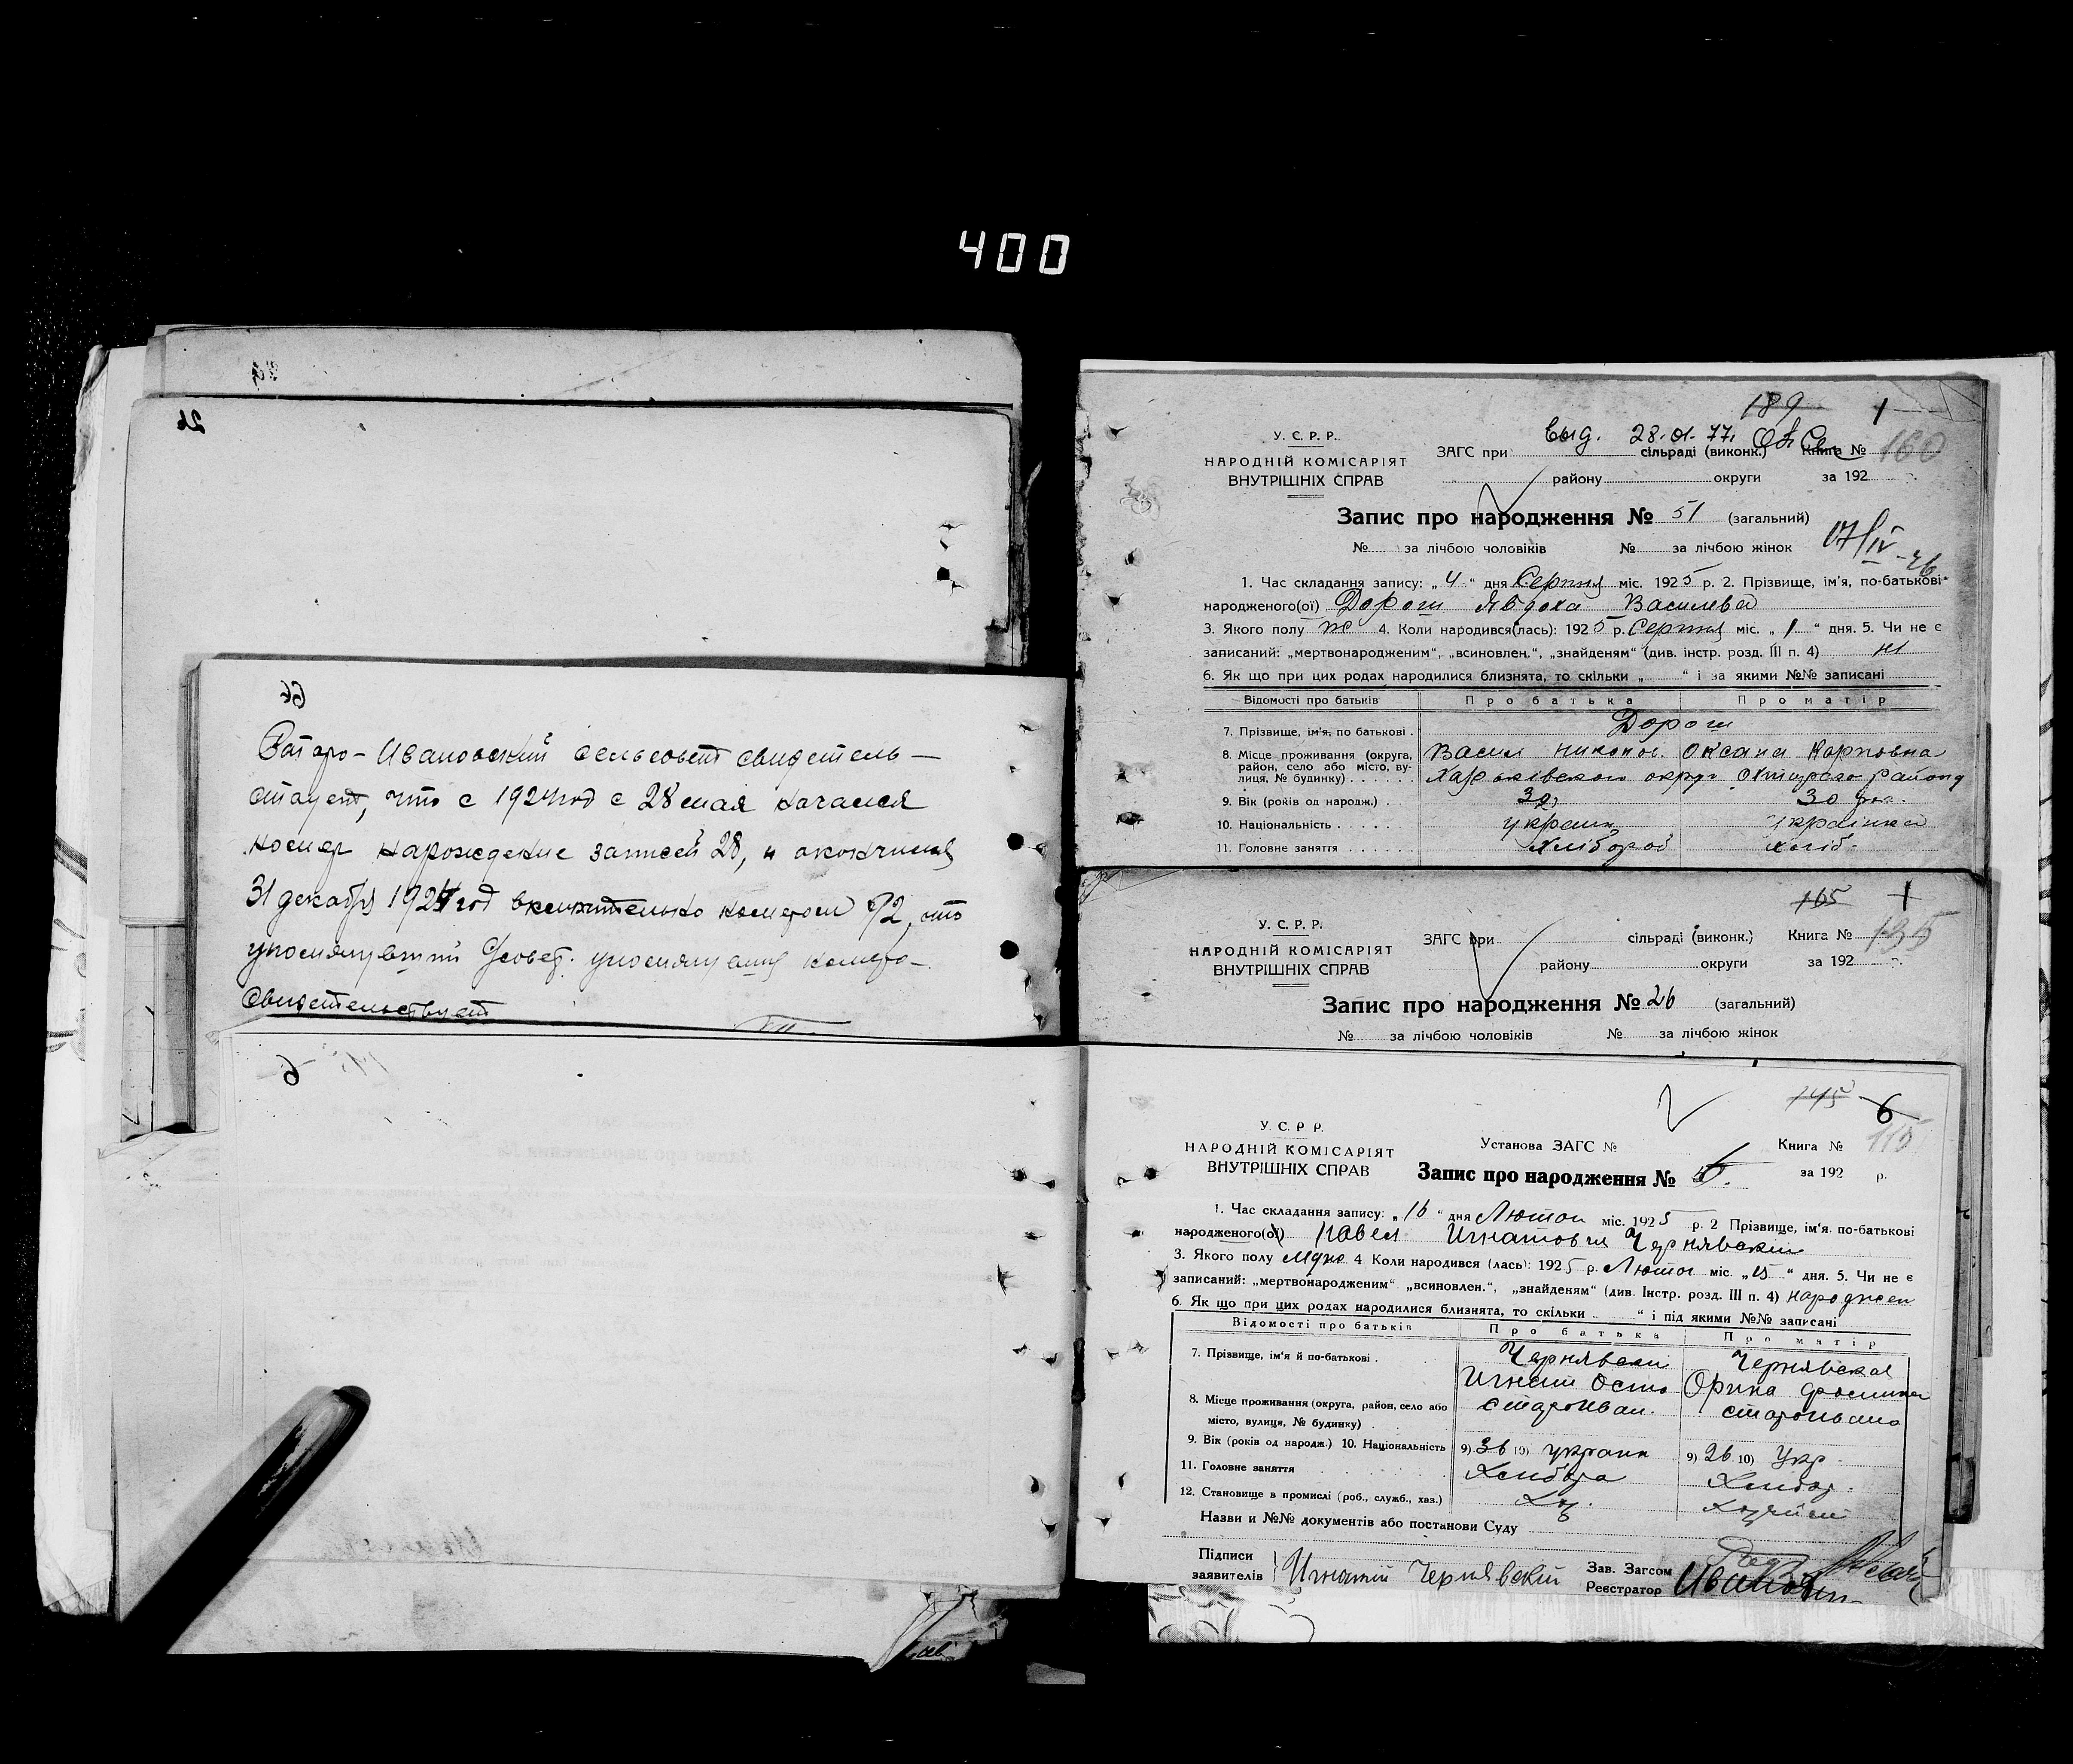 400
26
66
Старо-Ивановский сельсовет свидетель-
ствует, что с 1924 год с 28 мая начался
номер нарождение записей 28, и окончился
31 декабря 1924 год включительно номером 92, что
упомянувший с/совет. упомянутия номера
Свидетельствует
6
189 1
У. С. Р. Р.
выд. 28.01.77.
НАРОДНІЙ КОМІСАРІЯТ
ВНУТРІШНІХ СПРАВ
ЗАГС при сільраді (виконк.) Книга № 160
району округи за 192
Запис про народження № 51 (загальний)
№ за лічбою чоловіків № за лічбою жінок
1. Час складання запису: „4“ дня Серпня міс. 1925 р. 2. Прізвище, ім'я, по-батькові
народженого(ої) Дорош Явдоха Василева
3. Якого полу ж 4. Коли народився(лась): 1925 р. Серпня міс. „1“ дня. 5. Чи не є
записаний: „мертвонародженим“, „всиновлен.“, „знайденям“ (див. інстр. розд. III п. 4) ні
6. Як що при цих родах народилися близнята, то скільки „ “ і за якими №№ записані
Відомості про батьків Про батька Про матір
7. Прізвище, ім'я, по батькові . Дорош
8. Місце проживання (округа, район, село або місто, вулиця, № будинку) Васил Никол. Оксана Карповна
Харьківского округ района
9. Вік (років од народж.) 30 30
10. Національність украин українка
11. Головне заняття Хлібороб хліб.
165
У. С. Р. Р.
НАРОДНІЙ КОМІСАРІЯТ
ВНУТРІШНІХ СПРАВ
ЗАГС при сільраді (виконк.) Книга № 135
району округи за 192
Запис про народження № 26 (загальний)
№ за лічбою чоловіків № за лічбою жінок
145 6
У. С. Р Р.
НАРОДНІЙ КОМІСАРІЯТ
ВНУТРІШНІХ СПРАВ
Установа ЗАГС № Книга № 115
Запис про народження № 6. за 192 р.
1. Час складання запису: „16“ дня Лютого міс. 1925 р. 2 Прізвище, ім'я. по-батькові
народженого(ої) Павел Игнатович Чернявский
3. Якого полу Муж 4 Коли народився (лась): 1925 р. Лютог міс. „15“ дня. 5. Чи не є
записаний: „мертвонародженим“ „всиновлен.“, „знайденям“ (див. Інстр. розд. III п. 4) народжен
6. Як що при цих родах народилися близнята, то скільки “ і під якими №№ записані
Відомості про батьків Про батька Про матір
7. Прізвище, ім'я й по-батькові . Чернявски Чернявская
Игнат Осто Орина
8. Місце проживання (округа, район, село або Староиван. Староивано
місто, вулиця, № будинку) .
9. Вік (років од народж.) 10. Національність 9) 36 10) украин 9) 26 10) Укр.
11. Головне заняття Хлибора Хлибор.
12. Становище в промислі (роб., служб., хаз.) Хз.
Назви и №№ документів або постанови Суду
Підписи
заявителів Игнатий Чернявский
Зав. Загсом
Реєстратор